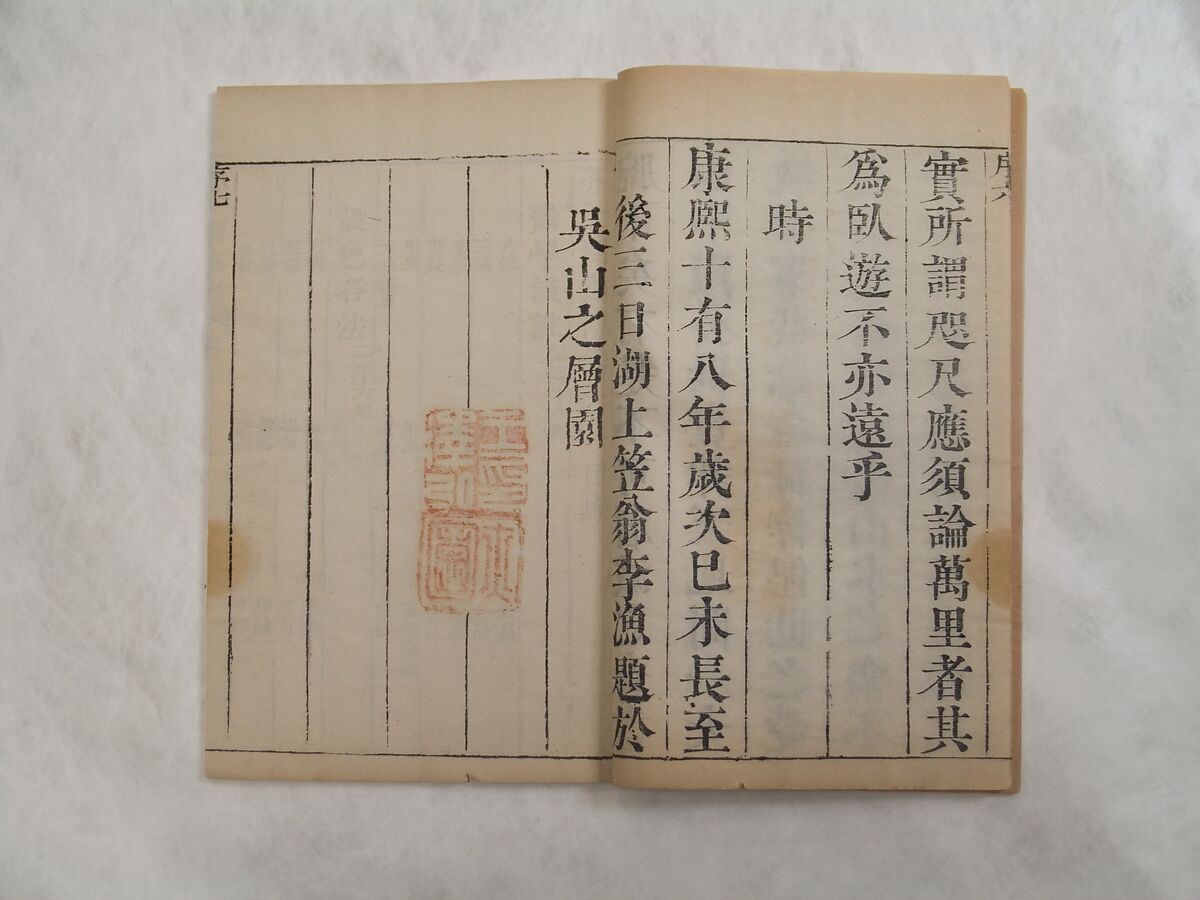 序六
實所謂咫尺應須論萬里者其
爲臥遊不亦遠乎
時
康熙十有八年歲次巳未長至
後三日湖上笠翁李漁題於
吳山之層園
序七